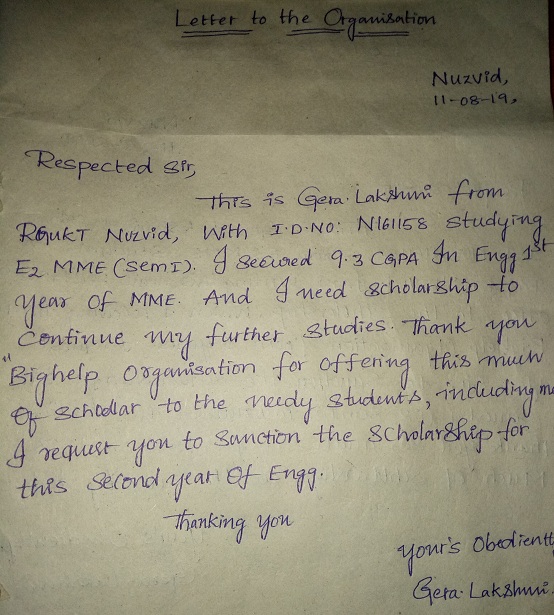 Letter to the Organisation
Nuzvid,
11-08-19,
Respected Sir,
This is Gera. Lakshmi from
RGUKT Nuzvid, With I.D.NO: N161158 studying
E2 MME (Sem I). I Secured 9.3 CGPA In Engg 1st
year Of MME. And I need scholarship to
Continue my further studies. Thank you
"Bighelp Organisation for offering this much
Of Scholar to the needy students, including me
I request you to Sanction the Scholarship for
this Second year Of Engg.
Thanking you
your's Obedientt
Gera. Lakshmi